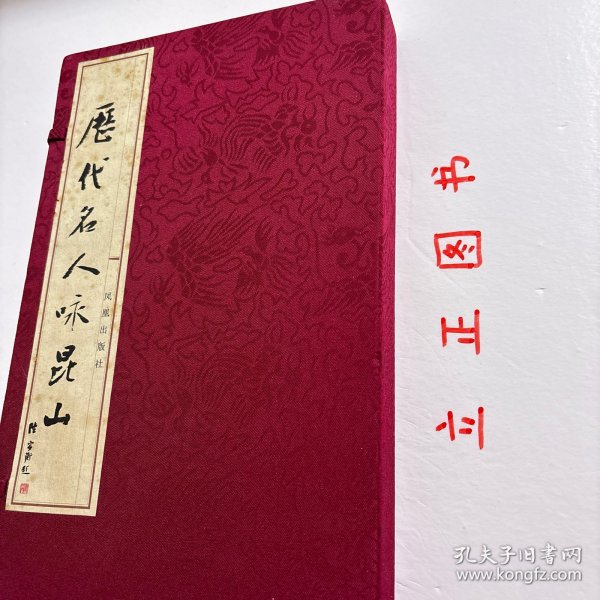 歷代名人咏昆山
凤凰出版社
陸家衡题
立正图书
孔夫子旧书网
www.kongfz.com